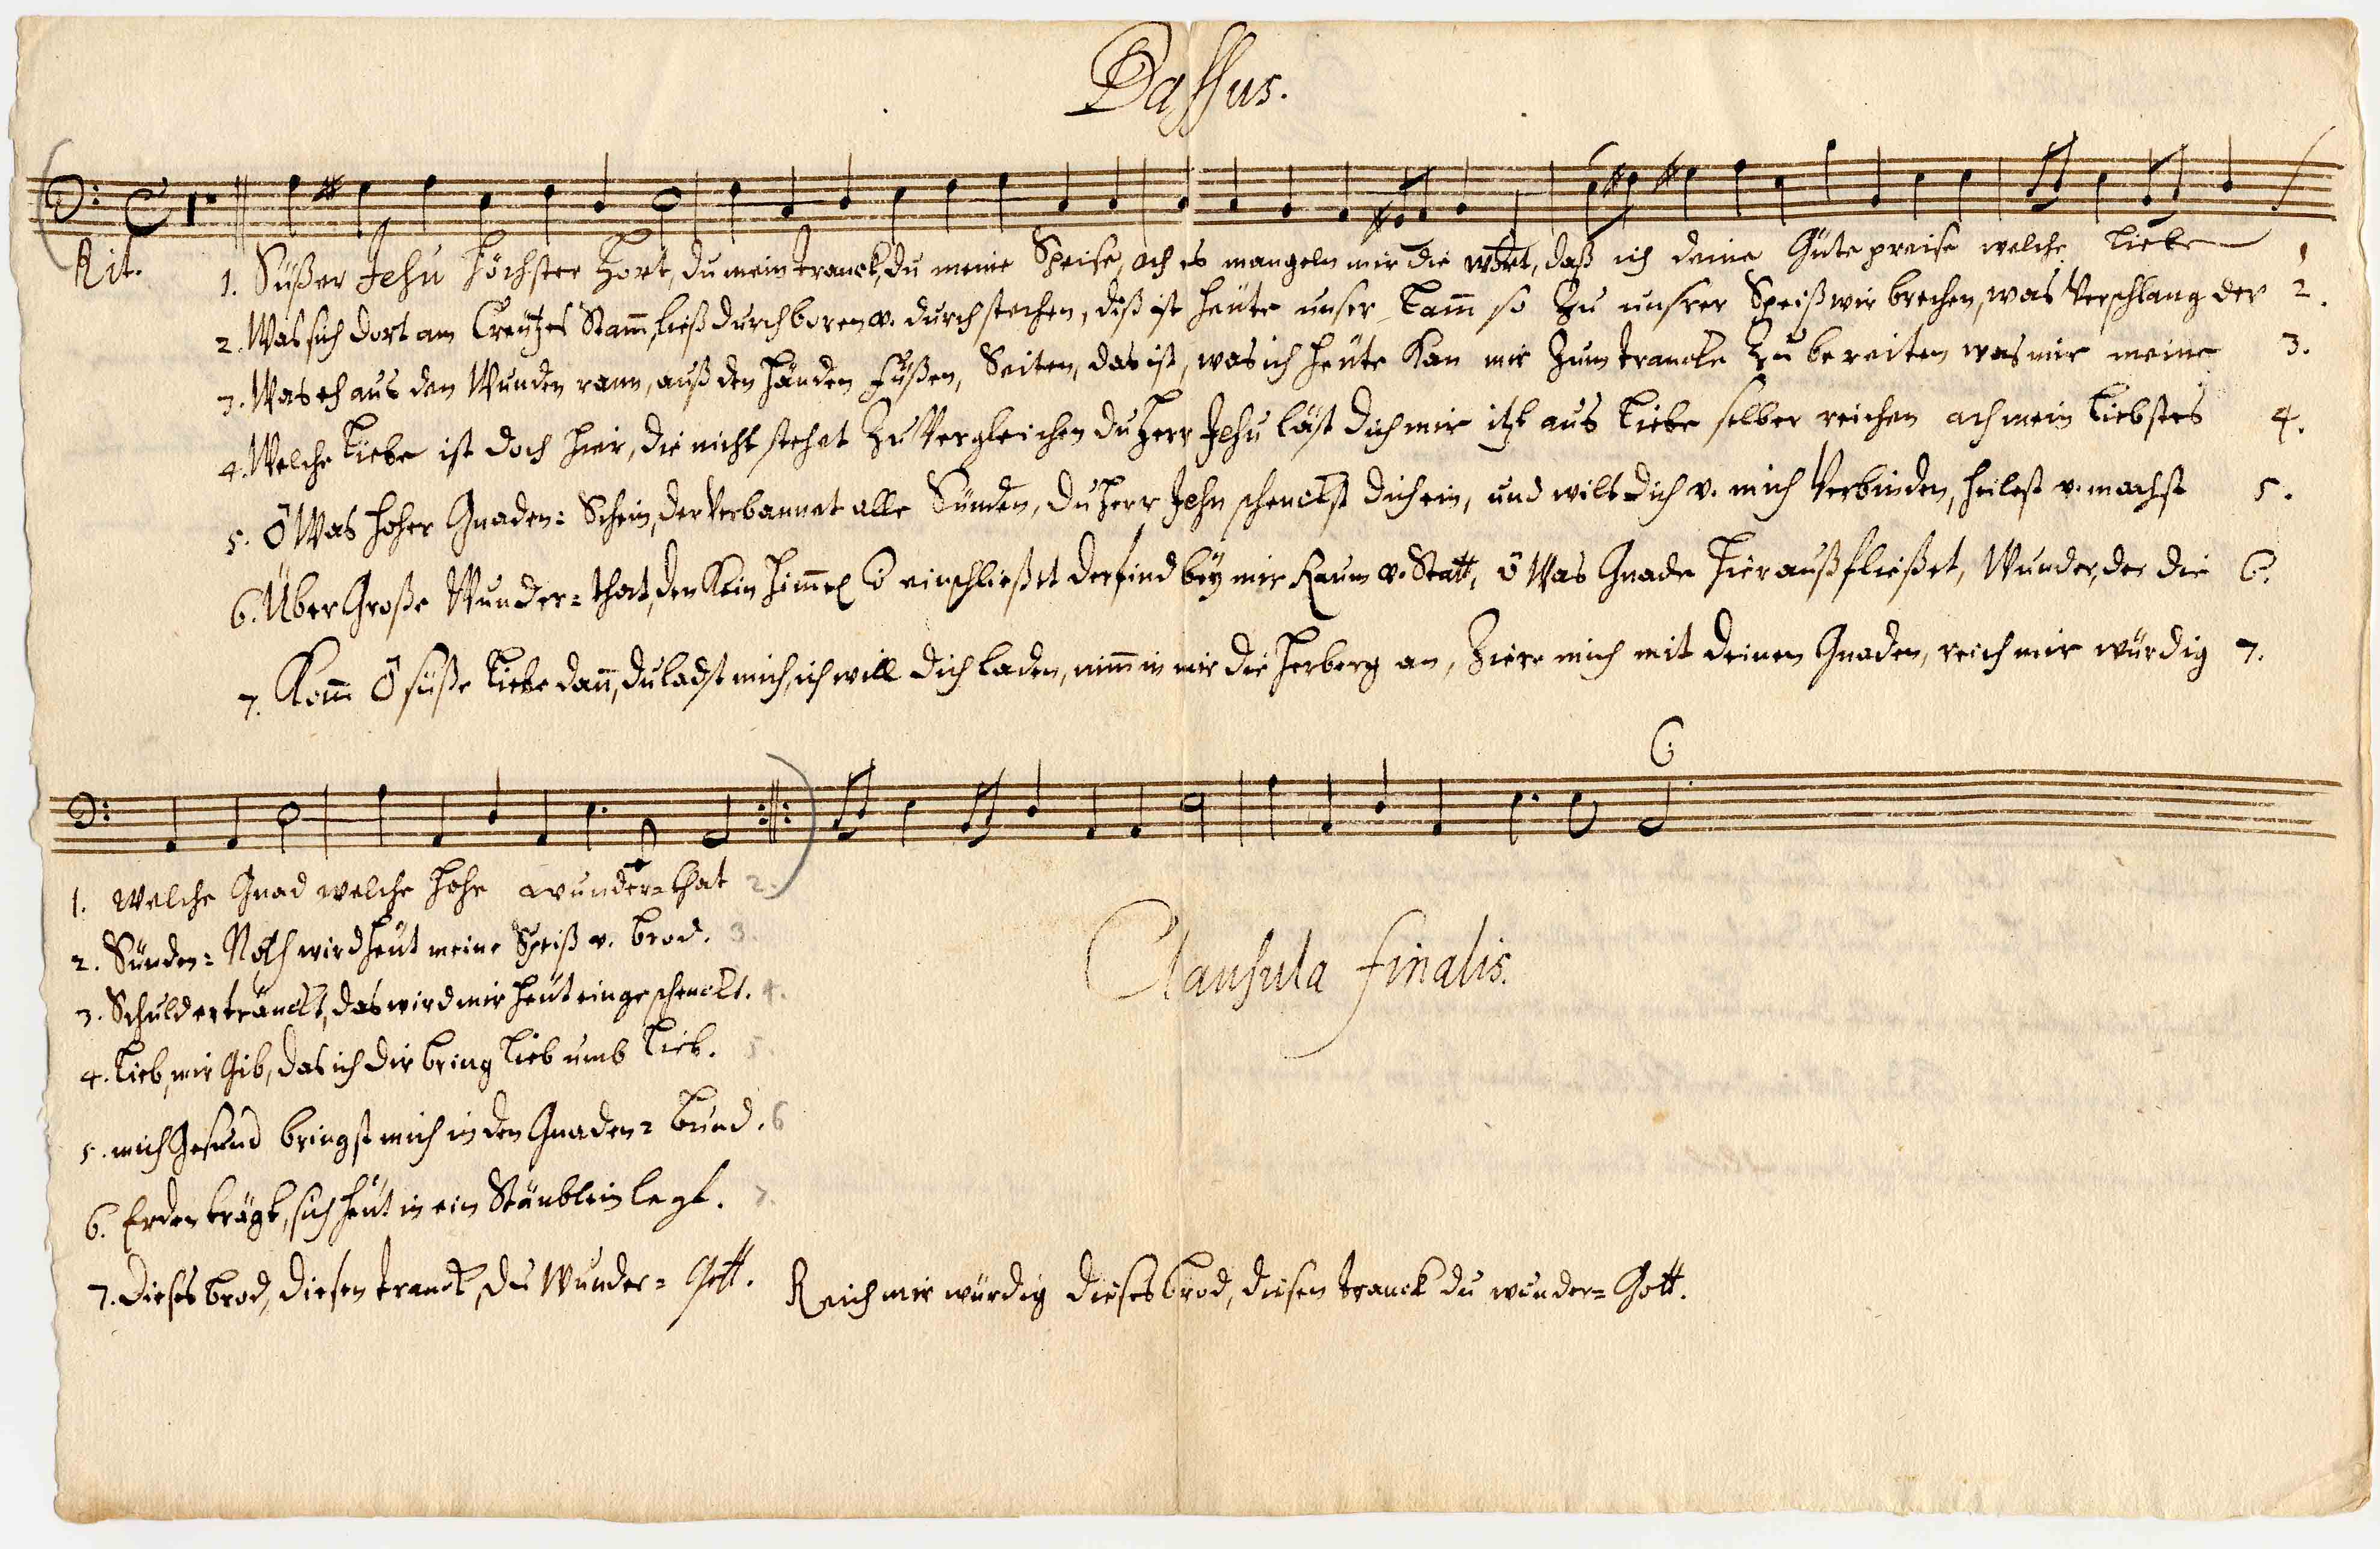 Bassus.
Rit.
1. Süßer Jesu Höchster Hort, du mein tranck, du meine Speise, ach es mangeln mir die wort, daß ich deine Güte preise welche Liebe 1
2. Was sich dort am Creützes Stam̄, ließ durchboren v. durchstechen, diß ist heüte unser Lam̄ so Zu unsrer Speiß wir brechen, was Verschlang der 2.
3. Was eh aus den Wunden rann, auß den Händen Füßen, Seiten, das ist, was ich heüte Kan mir Zum trancke Zu bereiten was mir meine 3.
4. Welche Liebe ist doch hier, die nicht stehet Zu Vergleichen du Herr Jesu läst dich mir itzt aus Liebe selber reichen ach mein Liebstes 4.
5. Ö Was hoher Gnaden= Schein, der Verbannet alle Sünden, du Herr Jesu schenckst dich ein, und wilt dich v. mich Verbinden, heilest v. machst 5.
6. Über Große Wunder= that, den Kein Him̄el einschließet der find bey mir Raum v. Statt, ö Was Gnade hier außfließet, Wunder, der die 6.
7. Kom̄ Ö süße Liebe dan̄, du ladst mich, ich will dich laden, nim̄ in mir die Herberg an, Ziere mich mit deinen Gnaden, reich mir würdig 7.
1. Welche Gnad welche hohe wunder= that 2.
2. Sünden= Noth wird heüt meine Speiß v. brod. 3.
3. Schuld ertränckt, das wird mir heüt eingeschenckt. 4.
4. Lieb, mir Gib, das ich dir bring Lieb umb Lieb. 5.
5. mich Gesund bringst mich in den Gnaden= bund. 6
6. Erden trägt, sich heüt in ein Stäublein legt. 7.
7. dieses brod, diesen tranck, du Wunder= Gott. Reich mir würdig dieses brod, diesen tranck du wunder= Gott.
Clausula finalis.